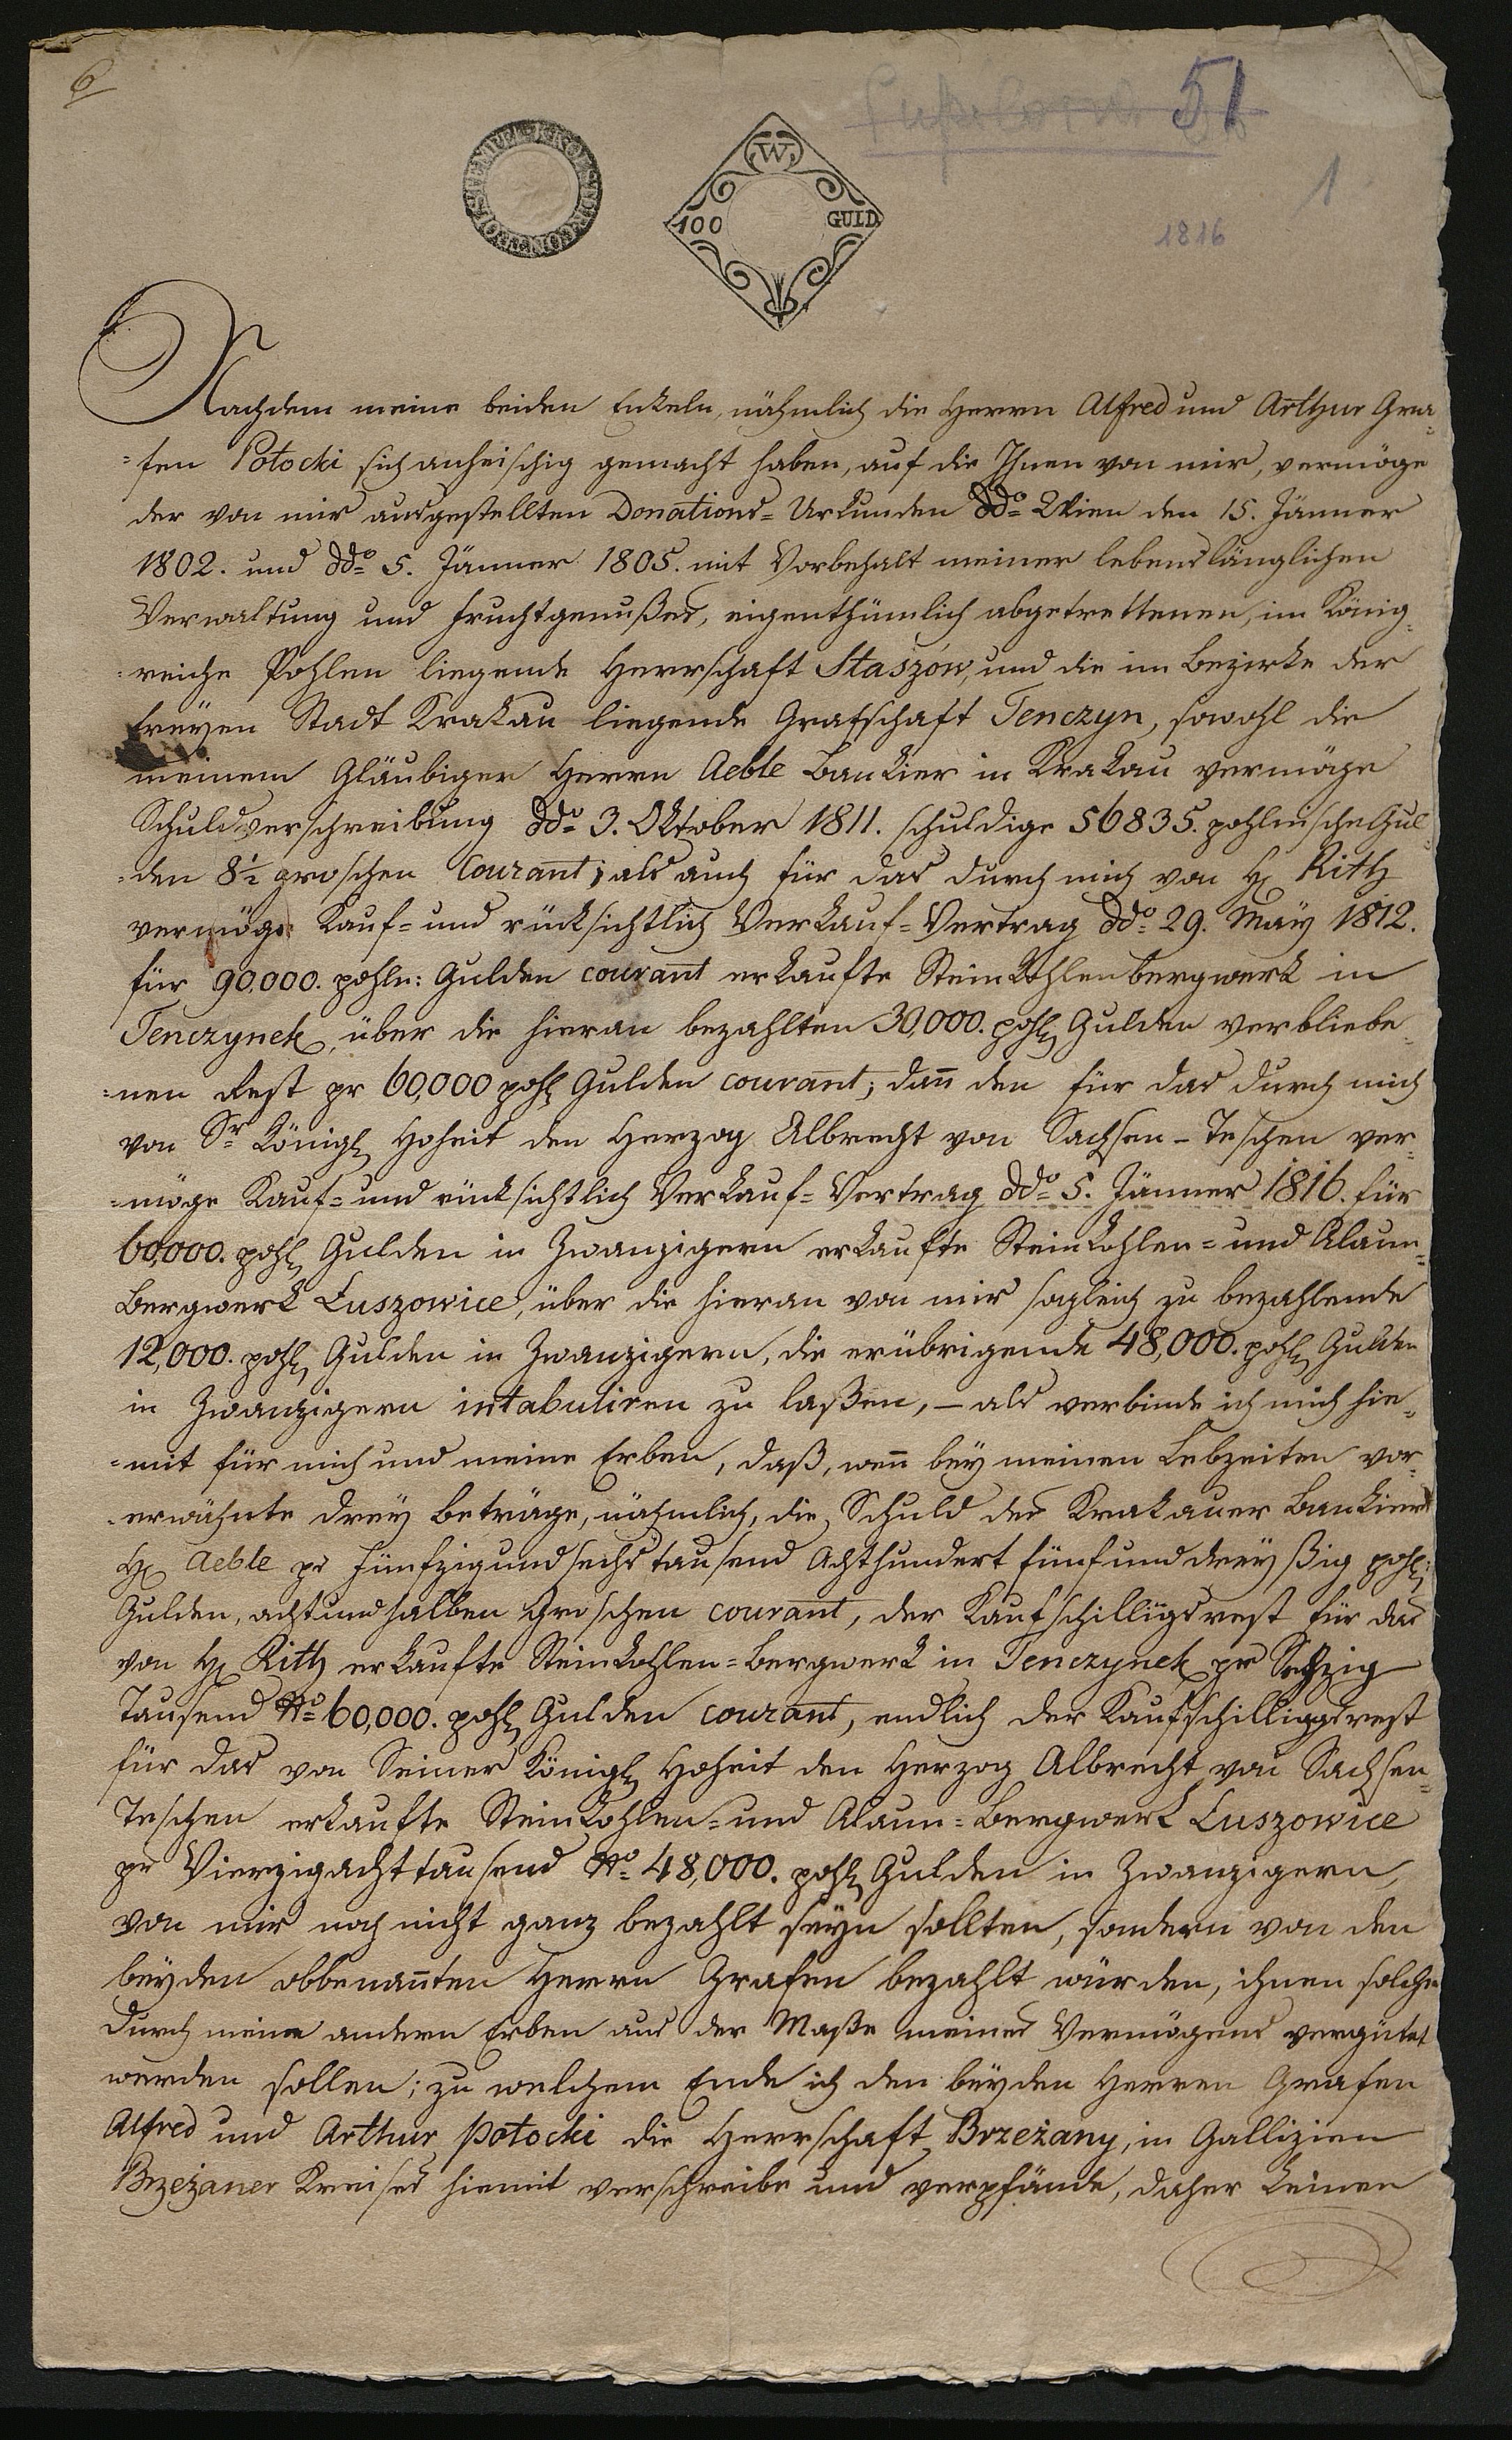 6
51
1
1816
W
100 GULD.
Nachdem meine beiden Enkeln, nähmlich die Herrn Alfred und Arthur Gra-
=fen Potocki sich anheischig gemacht haben, auf die Ihnen von mir, vermöge
der von mir ausgestellten Donations= Urkunden ddo Wien den 15. Jänner
1802. und ddo 5. Jänner 1805. mit Vorbehalt meiner lebenslänglichen
Verwaltung und Fruchtgenußes, eigenthümlich abgetrettenen, im König-
=reiche Pohlen liegende Herrschaft Staszów, und die im Bezirke der
freÿen Stadt Krakau liegende Grafschaft Tenczyn, sowohl die
meinem Gläubiger Herrn Aeble Bankier in Krakau vermöge
Schuldverschreibung ddo 3. Oktober 1811. schuldige 56835. pohlnische Gul-
=den 8½ groschen Courant; als auch für das durch mich von H. Kitz
vermöge Kauf= und rücksichtlich Verkauf=Vertrag ddo 29. Maÿ 1812.
für 90,000. pohln: Gulden courant erkaufte Steinkohlenbergwerk in
Tenczynek, über die hieran bezahlten 30,000. pohl. Gulden verbliebe-
=nen Rest pr 60,000 pohl. Gulden courant; dañ den für das durch mich
von Sr Königl. Hoheit den Herzog Albrecht von Sachsen-Teschen ver-
=möge Kauf= und rücksichtlich Verkauf=Vertrag ddo 5. Jänner 1816. für
60,000. pohl. Gulden in Zwanzigern erkaufte Steinkohlen= und Alaun-
Bergwerk Luszowice, über die hieran von mir sogleich zu bezahlende
12,000. pohl. Gulden in Zwanzigern, die erübrigende 48,000. pohl. Gulden
in Zwanzigern intabuliren zu laßen, – als verbinde ich mich hie-
=mit für mich und meine Erben, daß, weñ beÿ meinen Lebzeiten vor-
=erwähnte dreÿ Beträge, nähmlich, die Schuld des Krakauer Bankiers
H. Aeble pr Fünfzigundsechstausend Achthundert fünfunddreÿßig pohl:
Gulden, achtundhalben Groschen courant, der Kaufschillingsrest für das
von H. Kitz erkaufte Steinkohlen=Bergwerk in Tenczynek pr Sechzig
Tausend No 60,000. pohl. Gulden courant, endlich der Kaufschillingsrest
für das von Seiner Königl. Hoheit den Herzog Albrecht von Sachsen-
Teschen erkaufte Steinkohlen= und Alaun=Bergwerk Luszowice
pr Vierzigachttausend No 48,000. pohl. Gulden in Zwanzigern,
von mir noch nicht ganz bezahlt seÿn sollten, sondern von den
beÿden obbenañten Herrn Grafen bezahlt würden, ihnen solche
durch meine andern Erben aus der Maße meines Vermögens vergütet
werden sollen; zu welchem Ende ich den beÿden Herren Grafen
Alfred und Arthur Potocki die Herrschaft Brzeżany, in Gallizien
Brzeżaner Kreises hiemit verschreibe und verpfände, daher keinen